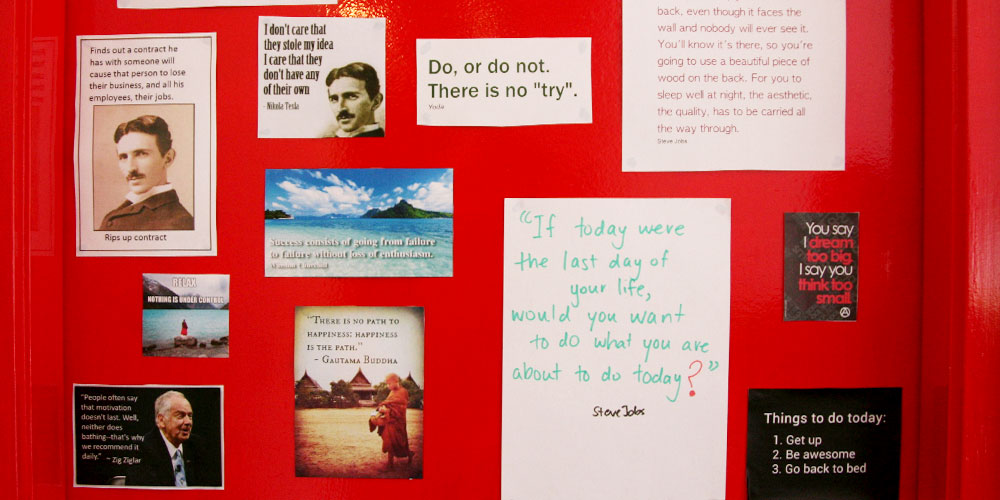 Finds out a contract he
has with someone will
cause that person to lose
their business, and all his
employees, their jobs.
Rips up contract
I don't care that
they stole my idea
I care that they
don't have any
of their own
- Nikola Tesla
Do, or do not.
There is no "try".
Yoda
back, even though it faces the
wall and nobody will ever see it.
You'll know it's there, so you're
going to use a beautiful piece of
wood on the back. For you to
sleep well at night, the aesthetic,
the quality, has to be carried all
the way through.
Steve Jobs
Success consists of going from failure
to failure without loss of enthusiasm.
Winston Churchill
RELAX
NOTHING IS UNDER CONTROL
"THERE IS NO PATH TO
HAPPINESS: HAPPINESS
IS THE PATH."
- GAUTAMA BUDDHA
"People often say
that motivation
doesn't last. Well,
neither does
bathing--that's why
we recommend it
daily." ~ Zig Ziglar
"If today were
the last day of
your life,
would you want
to do what you are
about to do today?"
Steve Jobs
You say
I dream
too big.
I say you
think too
small.
Things to do today:
1. Get up
2. Be awesome
3. Go back to bed